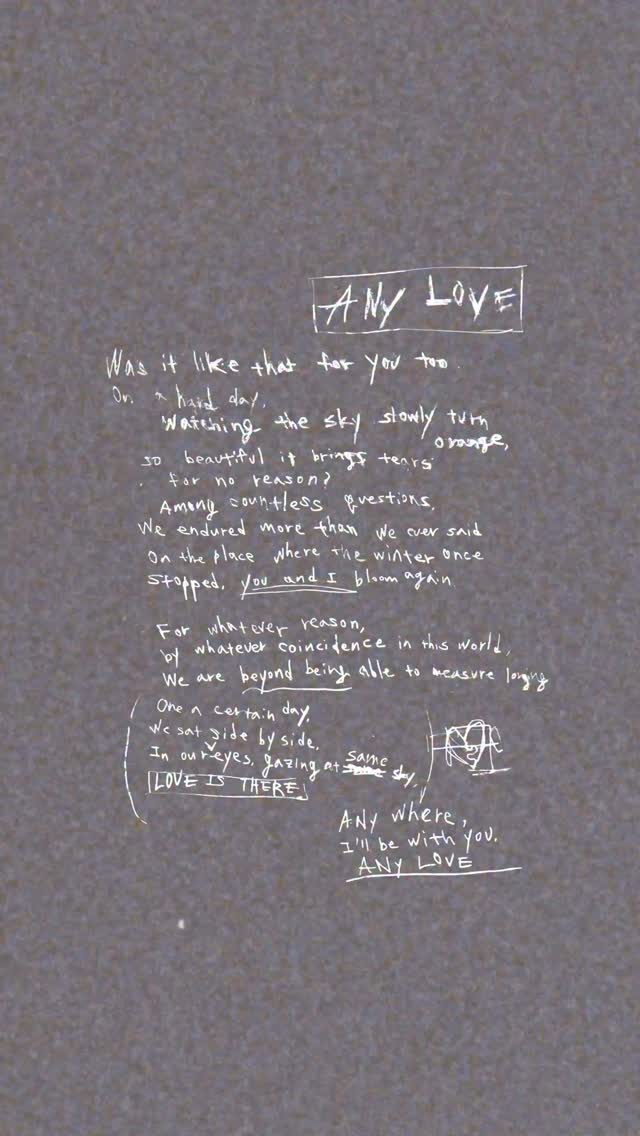 ANY LOVE
Was it like that for you too.
On a hard day,
Watching the sky slowly turn
orange,
so beautiful it brings tears
for no reason?
Among countless questions,
We endured more than we ever said
On the place where the winter once
stopped, you and I bloom again.
For whatever reason,
by whatever coincidence in this world,
We are beyond being able to measure longing
One a certain day,
We sat side by side,
In our eyes, gazing at same sky,
LOVE IS THERE
ANY where,
I'll be with you.
ANY LOVE